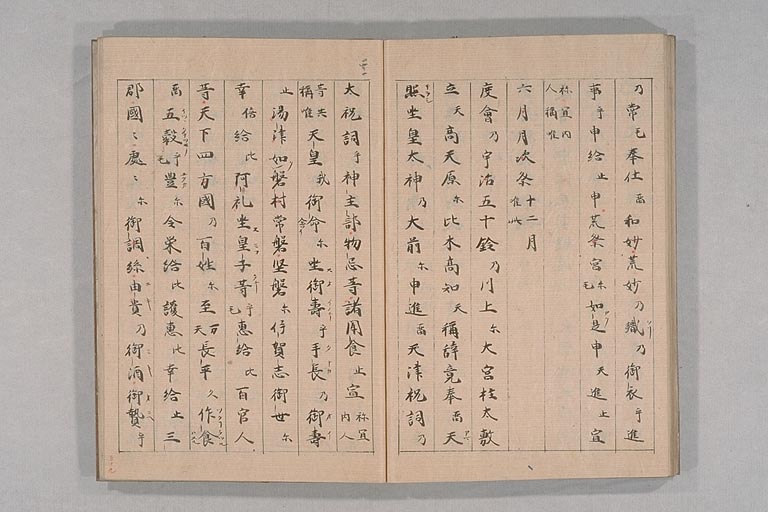 乃常毛奉仕留和妙荒妙乃織乃御衣乎進
事乎申給止申荒祭宮尓毛如是申天進止宣
祢宜内人稱唯
六月月次祭十二月准此
度會乃宇治五十鈴乃川上尓大宮柱太敷
立天高天原尓比木高知天稱辭竟奉留天
照坐皇太神乃大前尓申進留天津祝詞乃
太祝詞乎神主部物忌等諸聞食止宣祢宜内人
等共稱唯天皇我御命尓坐御壽乎手長乃御壽
止湯津如磐村常磐堅磐尓伊賀志御世尓
幸倍給比阿礼坐皇子等乎毛惠給比百官人
等天下四方國乃百姓尓至万天長平久作食
留五穀乎毛豐尓令榮給比護惠比幸給止三
郡國々處々尓御調絲由貴乃御酒御贄乎